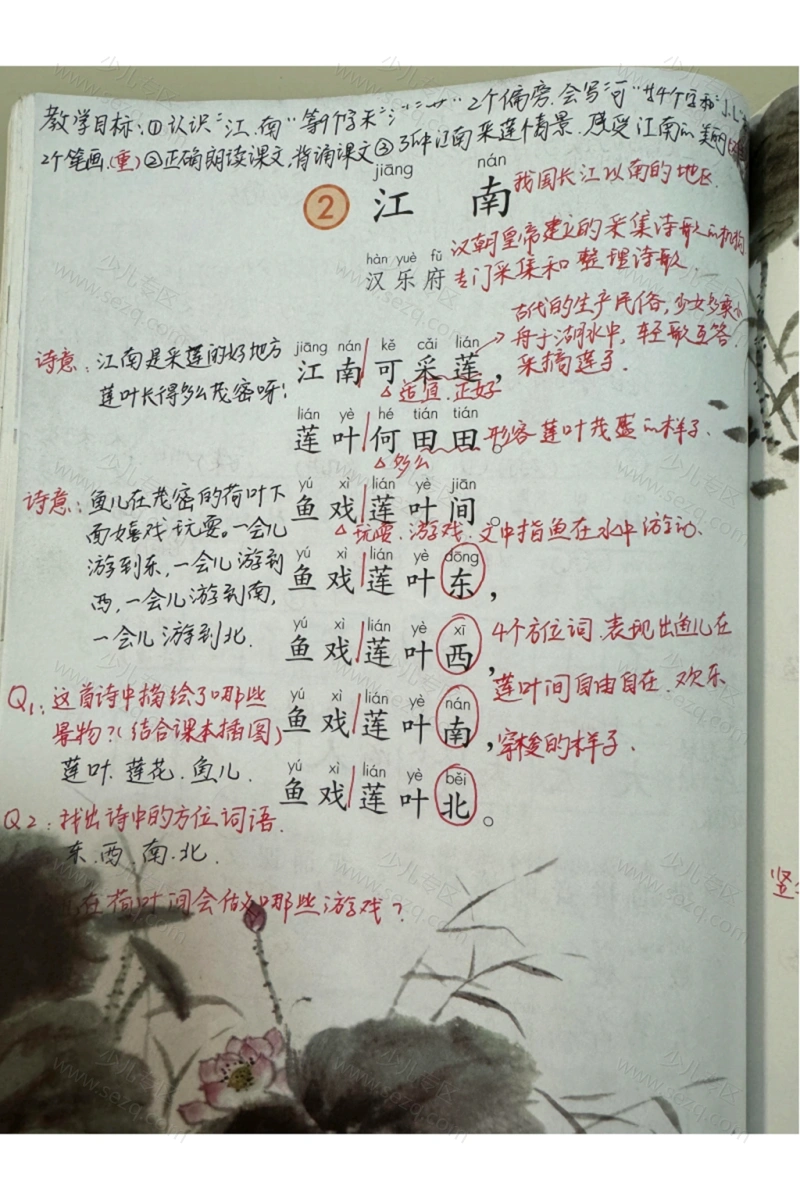 教学目标:①认识"江、南"等9个字和"氵""艹"2个偏旁.会写"可"共4个字和
2个笔画.(重)②正确朗读课文,背诵课文③了解江南采莲情景.感受江南的美丽
jiāng nán
2 江 南 我国长江以南的地区.
hàn yuè fǔ
汉 乐 府
汉朝皇帝建立的采集诗歌的机构
专门采集和整理诗歌,
古代的生产民俗,少女多乘小
舟于湖水中,轻歌互答.
采摘莲子.
诗意:江南是采莲的好地方
莲叶长得多么茂密呀!
jiāng nán kě cǎi lián
江 南 可 采 莲,
适宜.正好
lián yè hé tián tián
莲 叶 何 田 田。 形容莲叶茂盛的样子.
多么
诗意:鱼儿在茂密的荷叶下
面嬉戏玩耍。一会儿
游到东,一会儿游到
西,一会儿游到南,
一会儿游到北.
yú xì lián yè jiān
鱼 戏 莲 叶 间。
玩耍.游戏.文中指鱼在水中游动.
yú xì lián yè dōng
鱼 戏 莲 叶 东,
yú xì lián yè xī
鱼 戏 莲 叶 西,
4个方位词.表现出鱼儿在
莲叶间自由自在.欢乐
穿梭的样子.
yú xì lián yè nán
鱼 戏 莲 叶 南,
yú xì lián yè běi
鱼 戏 莲 叶 北。
Q1:这首诗中描绘了哪些
景物?(结合课本插图)
莲叶.莲花.鱼儿.
Q2:找出诗中的方位词语.
东.西.南.北.
在荷叶间会做哪些游戏?
竖
少儿专区
www.sezq.com